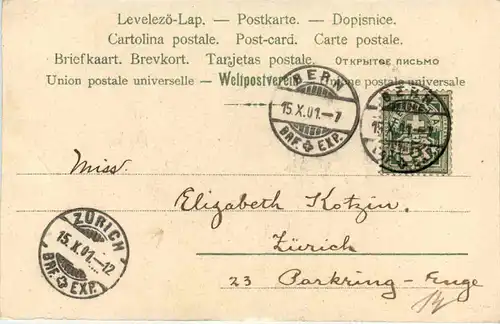 Levelező-Lap. — Postkarte. — Dopisnice.
Cartolina postale. Post-card. Carte postale.
Briefkaart. Brevkort. Tarjetas postale. ОТКРЫТОЕ ПИСЬМО
Union postale universelle — Weltpostverein — postale universale
BERN
15.X.01.–7
BRF. EXP.
BERN
15.X.01.–7
Miss.
Elizabeth Kotzin.
Zürich
23 Parkring - Enge
ZÜRICH
15.X.01.–12
BRF. EXP.